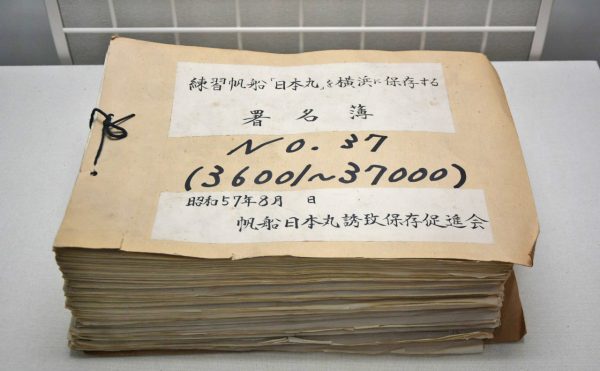 練習帆船「日本丸」を横浜に保存する
署名簿
NO.37
(36001~37000)
昭和57年8月 日
帆船日本丸誘致保存促進会